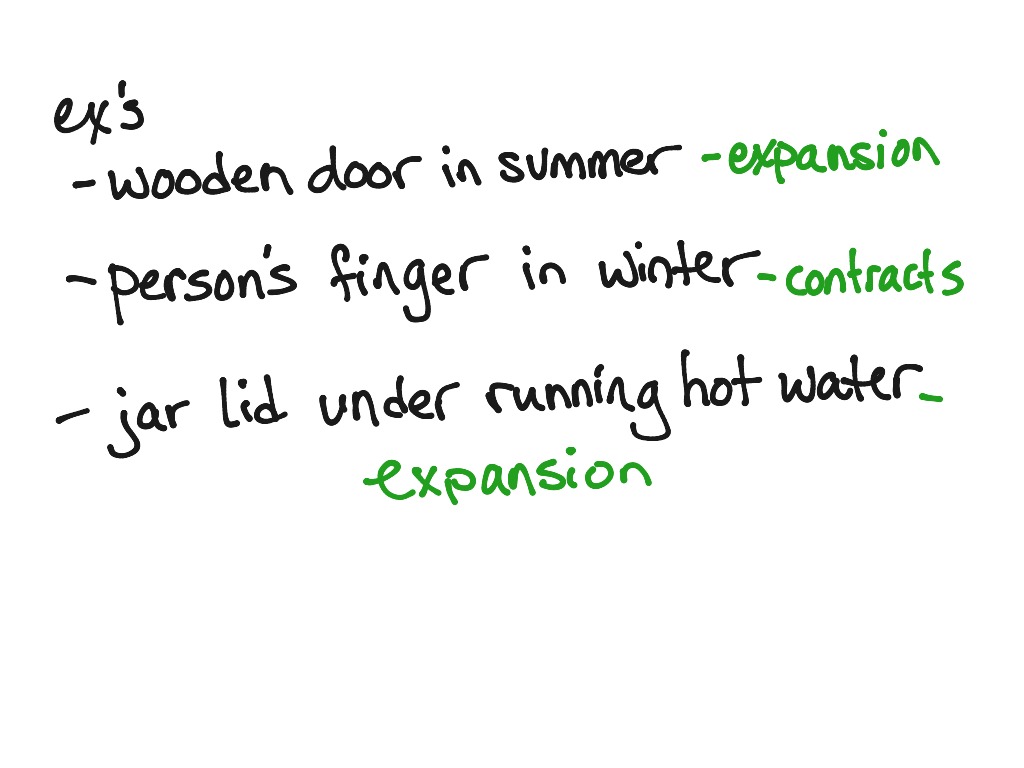 ex's
- wooden door in summer - expansion
- person's finger in winter - contracts
- jar lid under running hot water -
expansion